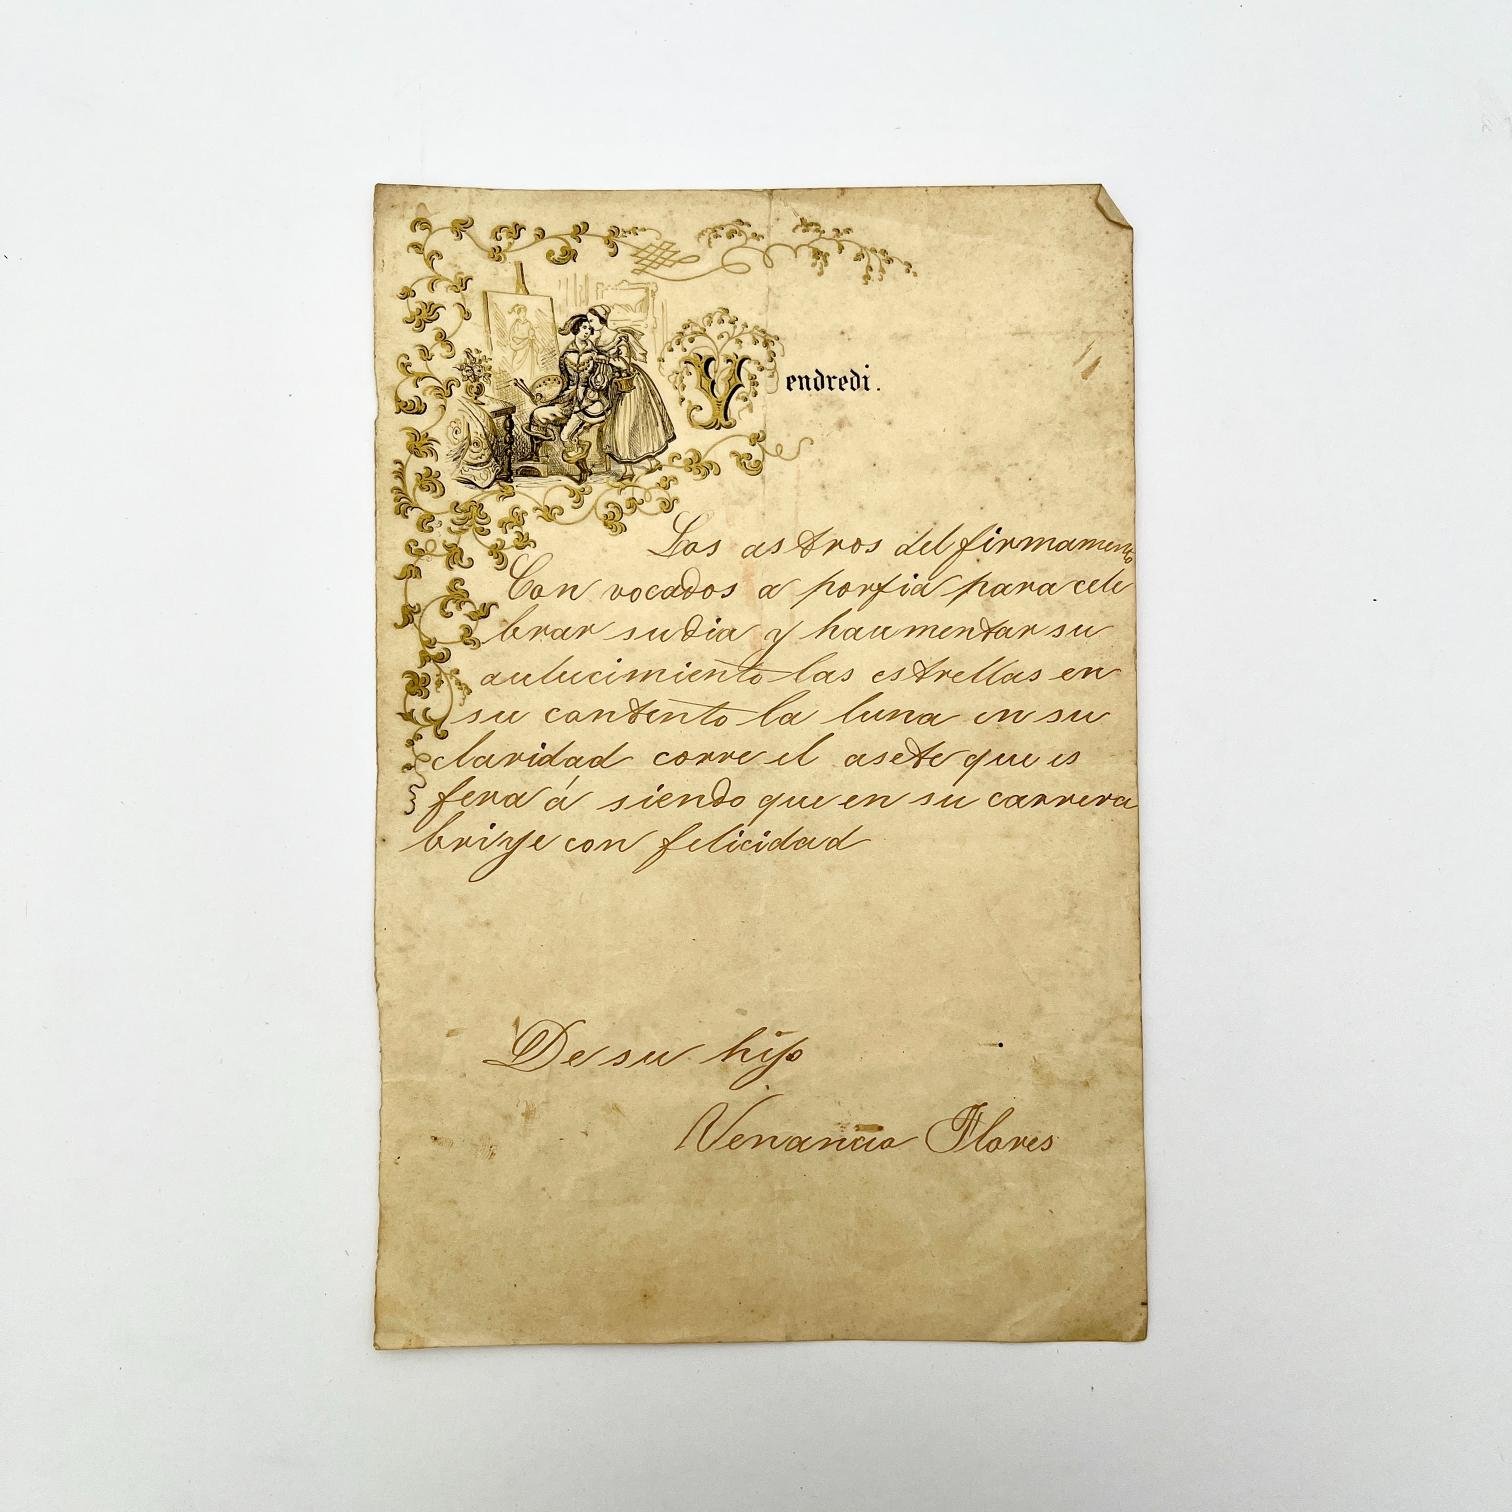 Vendredi.
Los astros del firmamento
Con vocados a porfia para cele
brar su dia y haumentar su
aulucimiento las estrellas en
su contento la luna en su
claridad corre el asete que es
fera á siendo que en su carrera
briye con felicidad
De su hijo
Venancio Flores